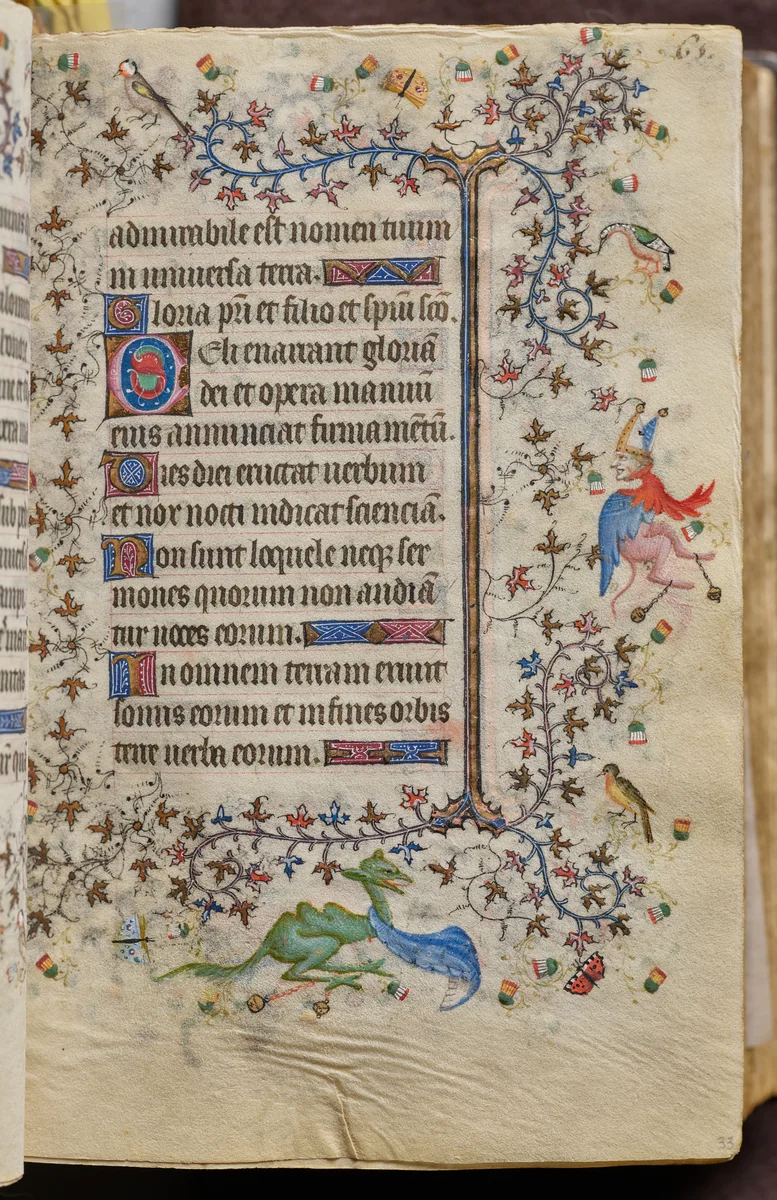 admirabile est nomen tuum
in universa terra.
Gloria pr̄i et filio et spiūi sc̄o.
Celi enarrant gloriā
dei et opera manuū
eius annunciat firmamētū.
Dies diei eructat uerbum
et nox nocti indicat scienciā.
Non sunt loquele neqꝫ ser
mones quorum non audiā
tur uoces eorum.
In omnem terram exiuit
sonus eorum et in fines orbis
terre uerba eorum.
33